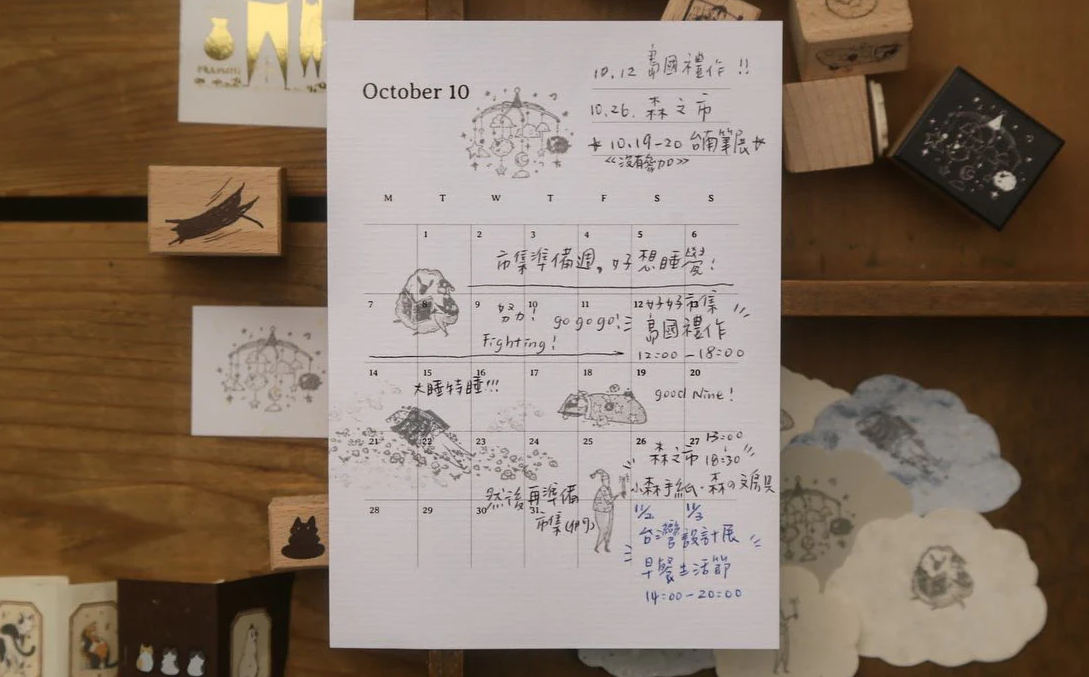 October 10
10.12 島國禮作 !!
10.26. 森之市
* 10.19-20 台南筆展 *
《沒有參加》
M T W T F S S
1 2 3 4 5 6
市集準備週,好想睡覺!
7 8 9 10 11 12
好好市集
努力! go go go! 島國禮作
Fighting! 12:00-18:00
14 15 16 17 18 19 20
大睡特睡!!! good Nine!
21 22 23 24 25 26 27
13:00
森之市 18:30
小森手紙・森の文房具
然後再準備
28 29 30 31 11/2 11/3
市集
台灣設計展
早餐生活節
14:00-20:00